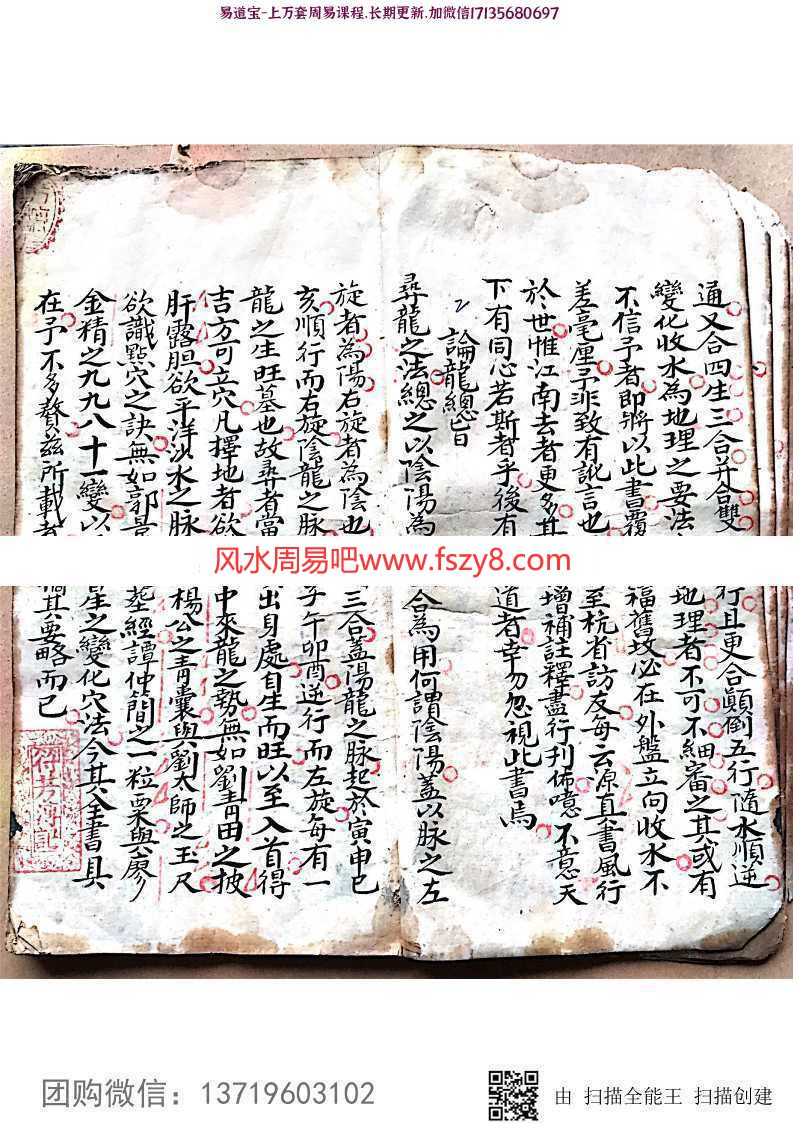 易道宝-上万套周易课程.长期更新.加微信17135680697
通又合四生三合并合雙行且更合顛倒五行隨水順逆
變化收水為地理之要法地理者不可不細審之其或有
不信予者即將以此書覆福舊坟必在外盤立向收水不
差毫厘予非致有訛言也至杭省訪友每云源真書風行
於世惟江南去者更多其增補註釋盡行刊佈噫不意天
下有同心若斯者乎後有道者幸勿忽視此書焉
論龍總旨
尋龍之法總之以陰陽為合為用何謂陰陽蓋以脉之左
旋者為陽右旋者為陰也三合蓋陽龍之脉起於寅申巳
亥順行而右旋陰龍之脉子午卯酉逆行而左旋每有一
龍之生旺墓也故尋者當出身處自生而旺以至入首得
吉方可立穴凡擇地者欲中來龍之勢無如劉青田之披
肝露胆欲平洋沙水之脉楊公之青囊與劉太師之玉尺
欲識點穴之訣無如郭景葬經譚仲簡之一粒粟與廖
金精之九九八十一變以星之變化穴法今其全書具
在予不多贅茲所載者其要略而已
风水周易吧www.fszy8.com
团购微信：13719603102
由 扫描全能王 扫描创建